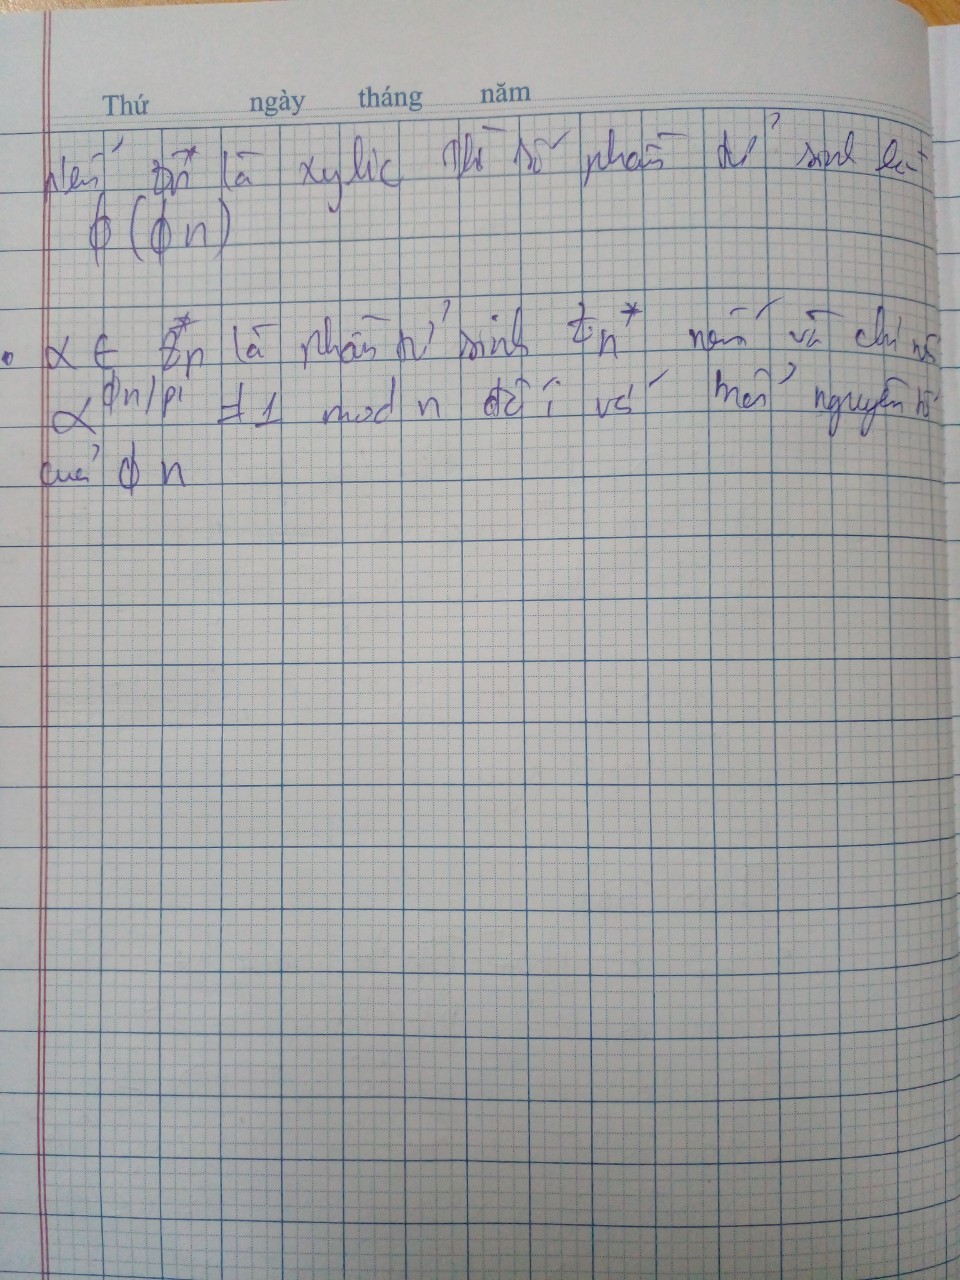 Thứ ngày tháng năm
Nếu Zn* là xylic thì số phần tử sinh là
ϕ(ϕn)
• α ∈ Zn* là phần tử sinh Zn* nếu và chỉ nế
α^ϕn/pi ≠ 1 mod n đối với mỗi nguyên tố
của ϕ n